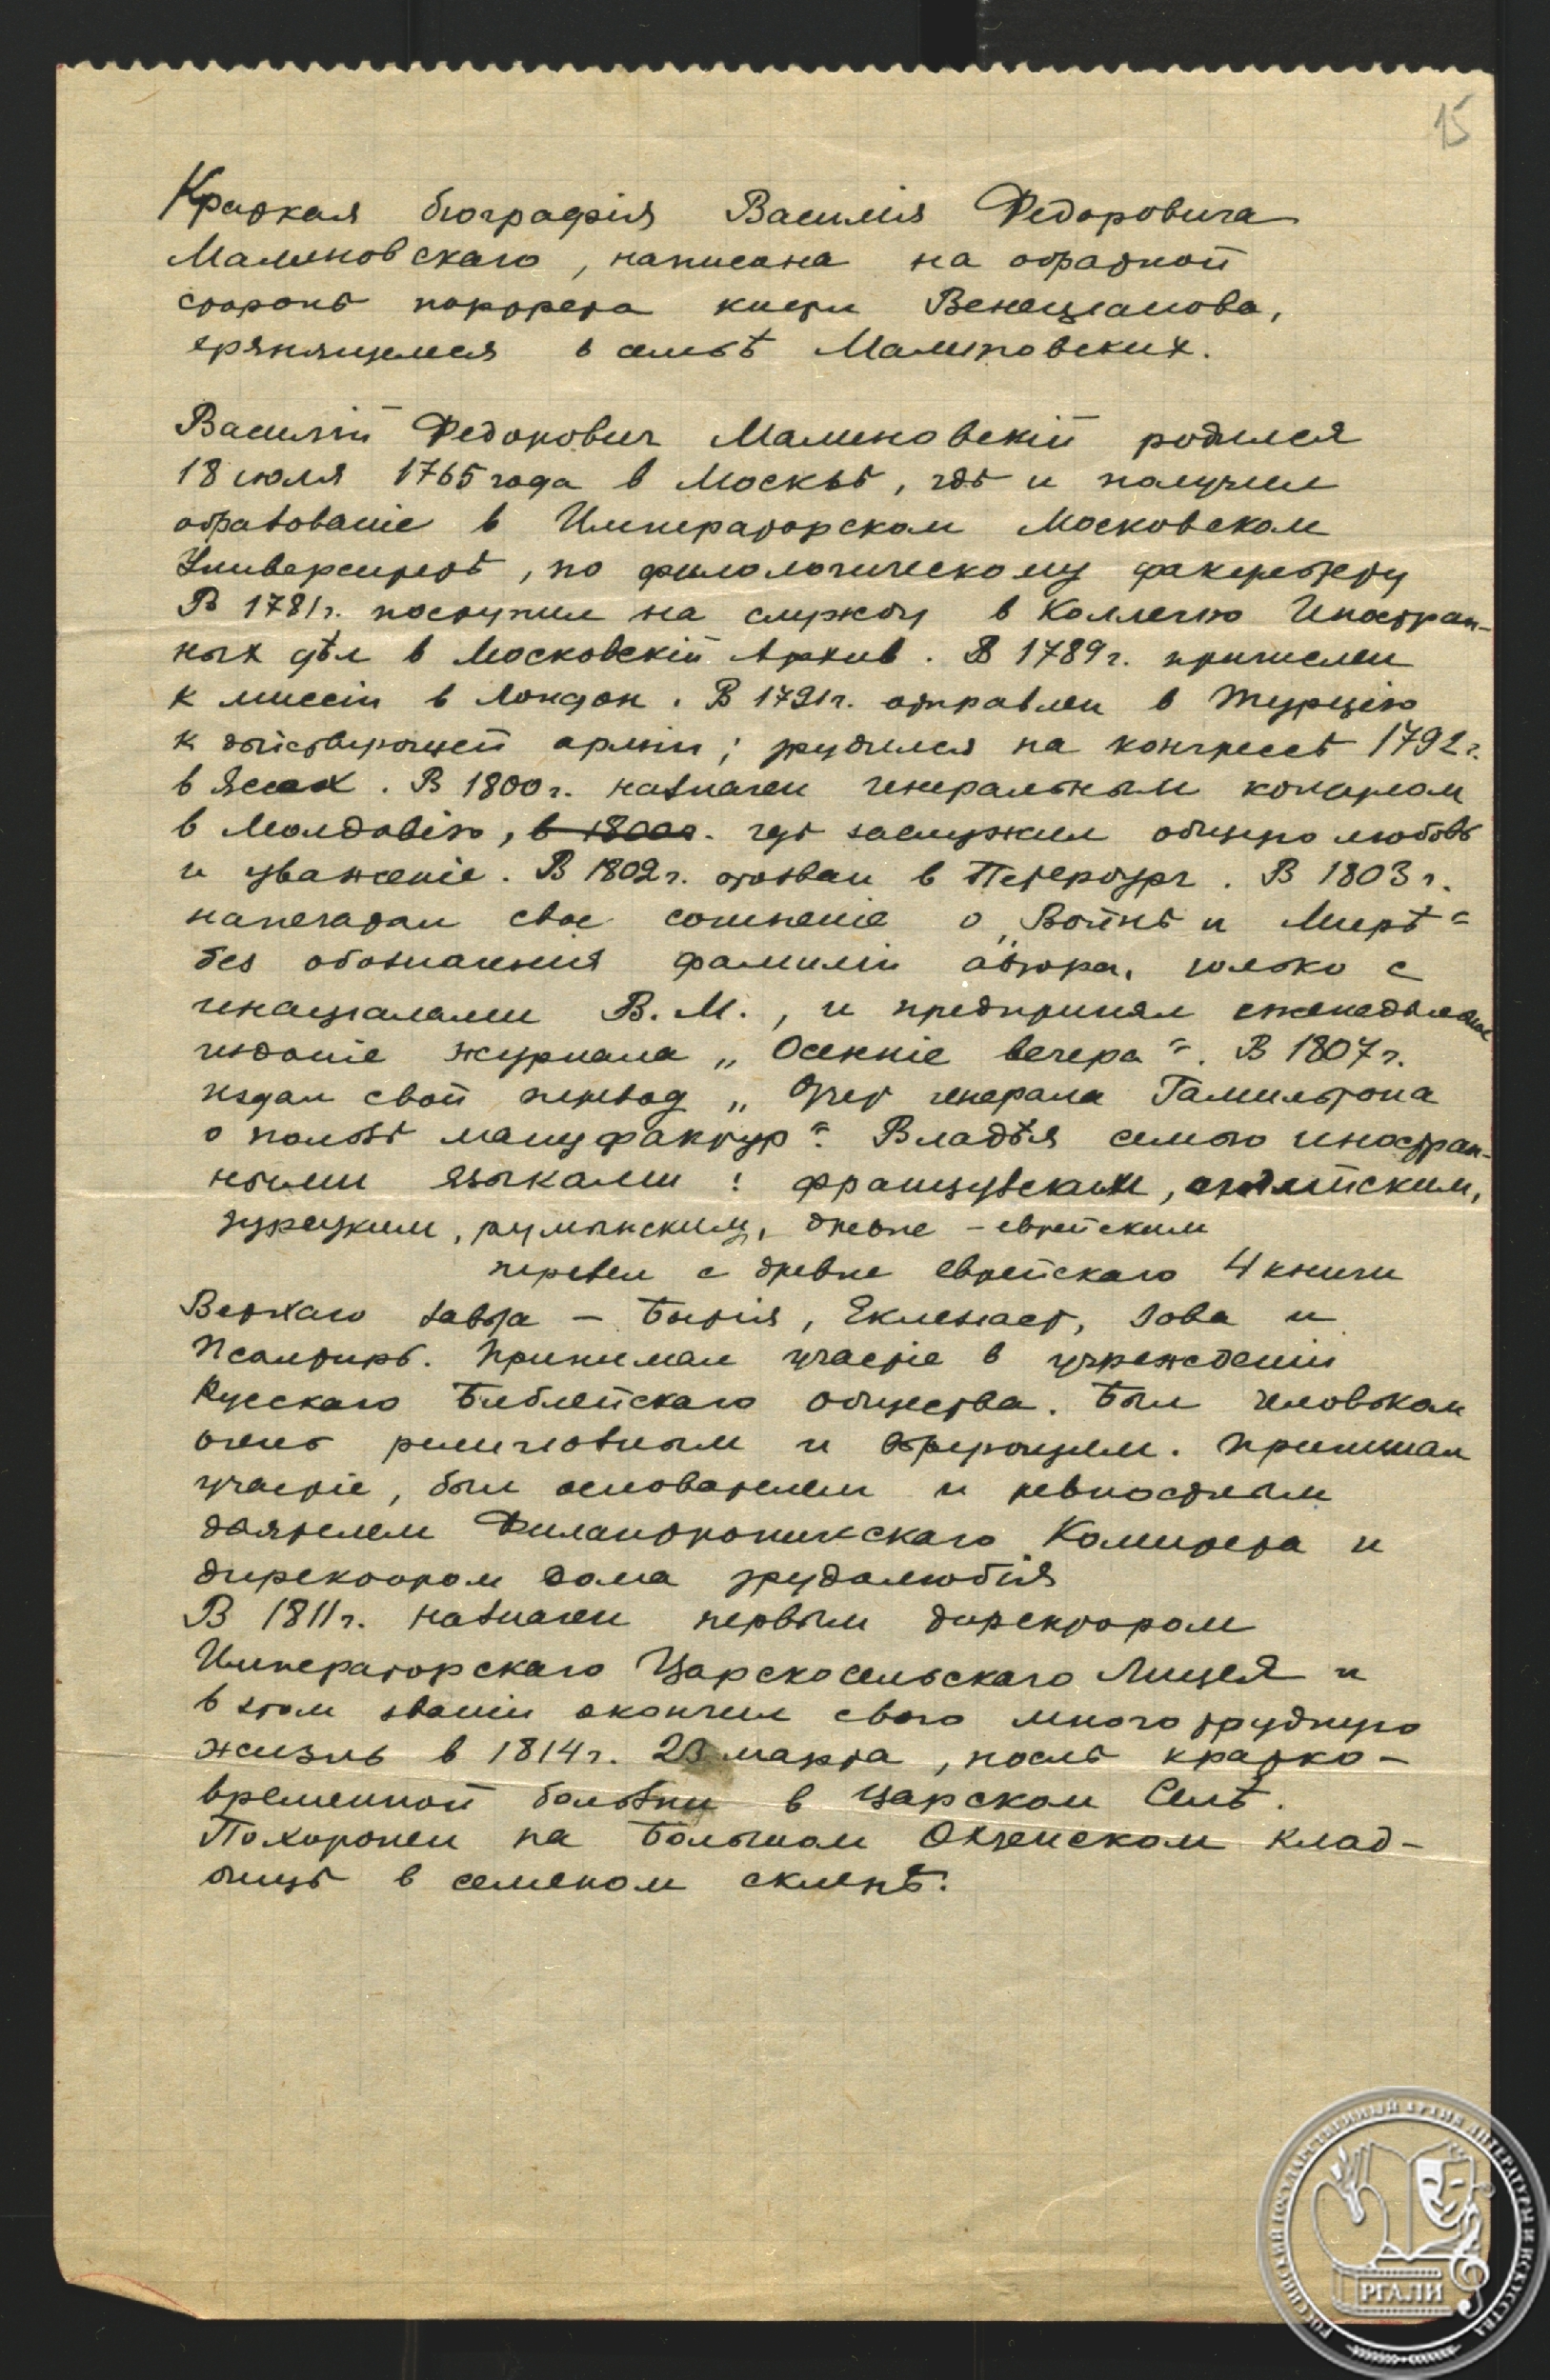 15
Краткая біографія Василія Федоровича
Малиновскаго, написана на обратной
сторонѣ портрета кисти Венеціанова,
хранящемся в семьѣ Малиновских.
Василій Федорович Малиновскій родился
18 июля 1765 года в Москвѣ, гдѣ и получил
образованіе в Императорском Московском
Университетѣ, по филологическому факультету
В 1781 г. поступил на службу в Коллегію Иностран-
ных дѣл в Московскій Архив. В 1789 г. причислен
к миссіи в Лондон. В 1791 г. отправлен в Турцію
к дѣйствующей арміи; трудился на конгрессѣ 1792 г.
в Яссах. В 1800 г. назначен генеральным консулом
в Молдавію, в 1800 г. гдѣ заслужил общую любовь
и уваженіе. В 1802 г. отозван в Петербург. В 1803 г.
напечатал свое сочиненіе о „Войнѣ и Мирѣ“
без обозначения фамиліи автора, только с
инациалами В. М., и предпринял еженедѣльное
издание журнала „Осенніе вечера“. В 1807 г.
издал свой перевод „Отчет генерала Гамильтона
о пользѣ мануфактур“. Владѣя семью иностран-
ными языками: французским, английским,
турецким, румынским, древне-еврейским
перевел с древне еврейскаго 4 книги
Ветхаго завѣта – Бытія, Еклезиаст, Іова и
Псалтирь. Принимал участіе в учрежденіи
Русскаго Библейскаго общества. Был человѣком
очень религиозным и вѣрующим. Принимал
участіе, был основателем и ревностным
дѣятелем Филантропическаго Комитета и
директором дома трудолюбія
В 1811 г. назначен первым директором
Императорскаго Царскосельскаго Лицея и
в этом званіи окончил свою многотрудную
жизнь в 1814 г. 23 марта, послѣ кратко-
временной болѣзни в Царском Селѣ.
Похоронен на Большом Охтенском клад-
бищѣ в семейном склепѣ.
РОССИЙСКИЙ ГОСУДАРСТВЕННЫЙ АРХИВ ЛИТЕРАТУРЫ И ИСКУССТВА
РГАЛИ